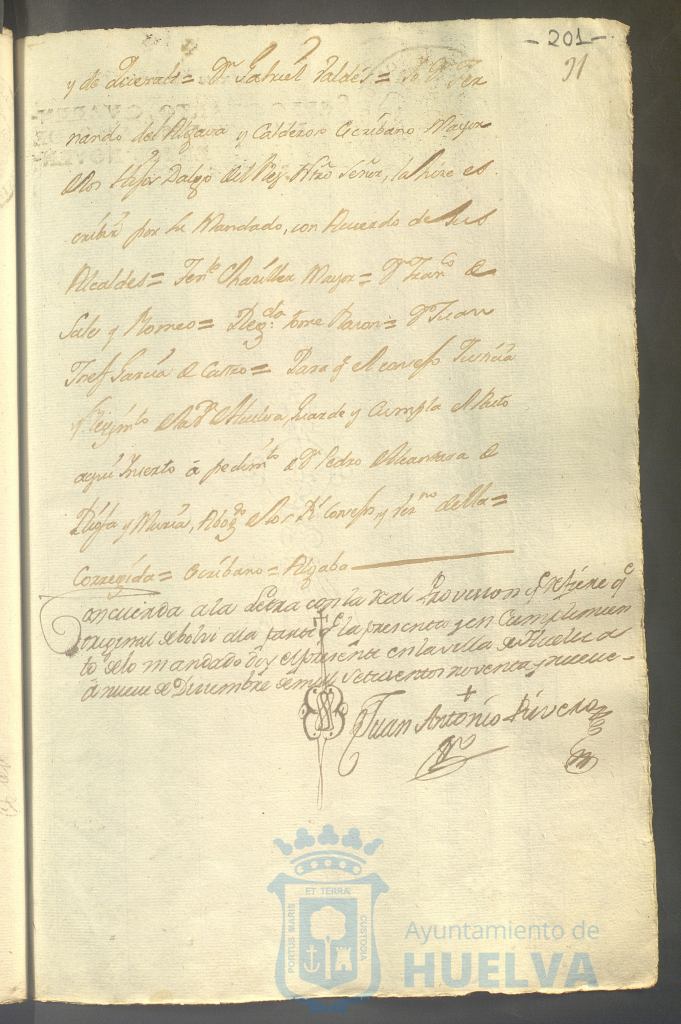 - 201 -
91
y de Quevedo= Dn Gabriel Valdes= Yo Dn Fer
nando del Algava y Calderon Escribano Mayor
Hijos Dalgo del Rey Ntro Señor, la hize es
cribir por su Mandado, con Acuerdo de sus
Alcaldes= Tente Chanziller Mayor= Dn Franco de
Sales y Romeo= Regda Dn Juan
Josef Garcia de Castro= Para qe el consejo Justicia
y Rejimto de la Va de Huelva, Guarde y Cumpla el Auto
aqui Inserto á pedimto de Dn Pedro Alcantara de
y Abogdo de los Rs Consejos y Vezno della=
Corregida= Escribano= Algaba
Concuerda a la Letra con la Real Provision qe refiere qe
original debolvi ala parte qe la presento y en Cumplimien
to de lo mandado doy el presente en la villa de Huelva
á nueve de Diciembre de mill Setecientos noventa y nueve-
Juan Antonio Rivero
ET TERRA
PORTUS MARIS
CUSTODIA
Ayuntamiento de
HUELVA